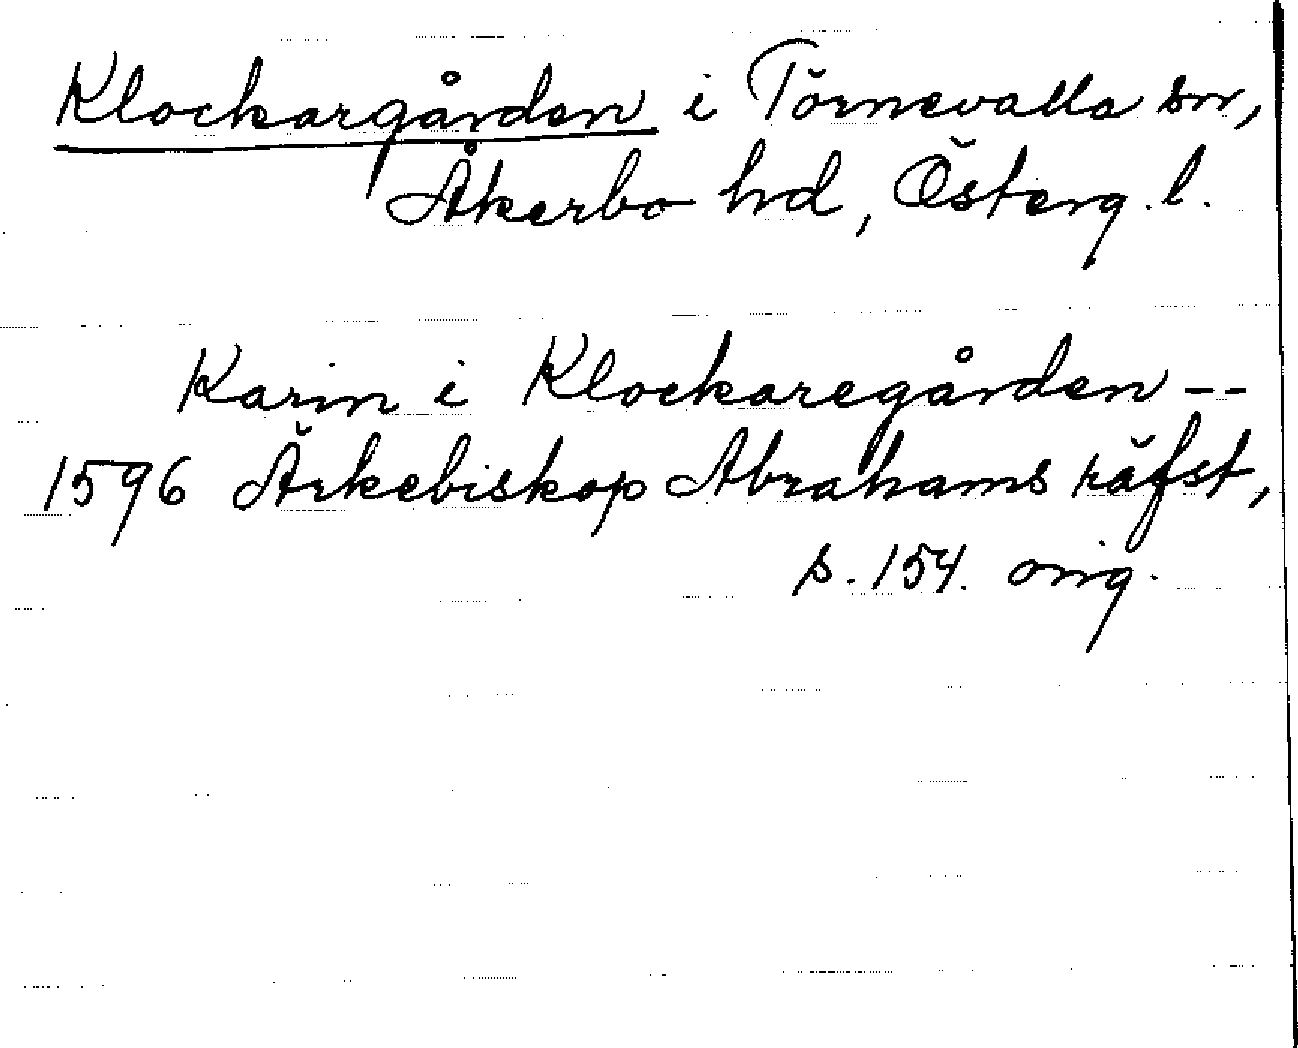 Klockargården i Törnevalla sn,
Åkerbo hd, Österg. l.
Karin i Klockaregården --
1596 Ärkebiskop Abrahams räfst,
s. 154. orig.